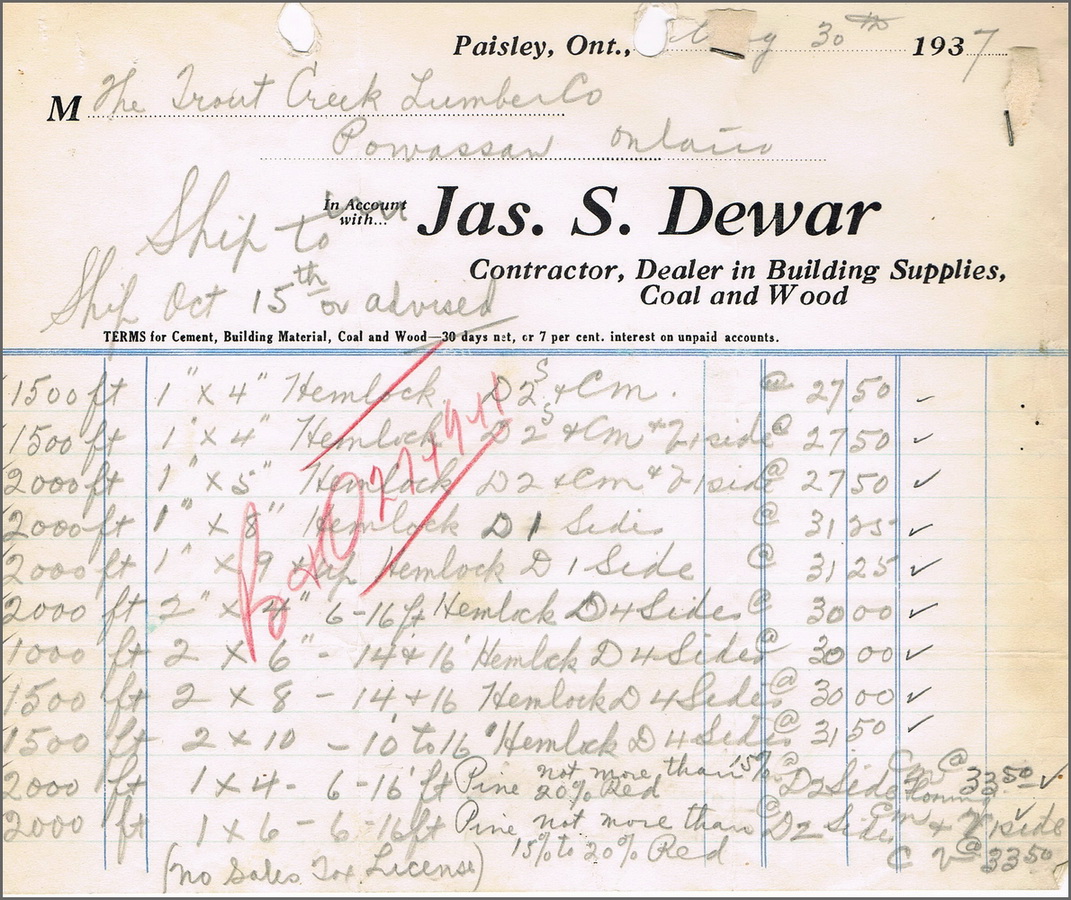 Paisley, Ont., Aug 30th 1937
M The Trout Creek Lumber Co
Powassan Ontario
In Account
with...
Jas. S. Dewar
Ship to
Contractor, Dealer in Building Supplies,
Coal and Wood
Ship Oct 15th or advised
TERMS for Cement, Building Material, Coal and Wood—30 days net, or 7 per cent. interest on unpaid accounts.
1500 ft 1" x 4" Hemlock D2S & Cm. @ 27 50 ✓
1500 ft 1" x 4" Hemlock D2S & Cm & V1side @ 27 50 ✓
2000 ft 1" x 5" Hemlock D2 & Cm & V1side @ 27 50 ✓
2000 ft 1" x 8" Hemlock D1 Side @ 31 25 ✓
2000 ft 1" x 9 & up Hemlock D1 Side @ 31 25 ✓
2000 ft 2" x 4" 6-16 ft Hemlock D4Sides @ 30 00 ✓
1000 ft 2 x 6" - 14 & 16' Hemlck D4Sides @ 30 00 ✓
1500 ft 2 x 8 - 14 + 16 Hemlock D4Sides @ 30 00 ✓
1500 ft 2 x 10 - 10' to 16' Hemlock D4Sides @ 31 50 ✓
2000 ft 1 x 4 - 6-16' ft Pine not more than 15% D2Side Cm @ 33 50 ✓
20% Red
2000 ft 1 x 6 - 6-16 ft Pine not more than @ D2 Side Cm & V1side
15% to 20% Red C V @ 33 50
(No Sales Tax License)